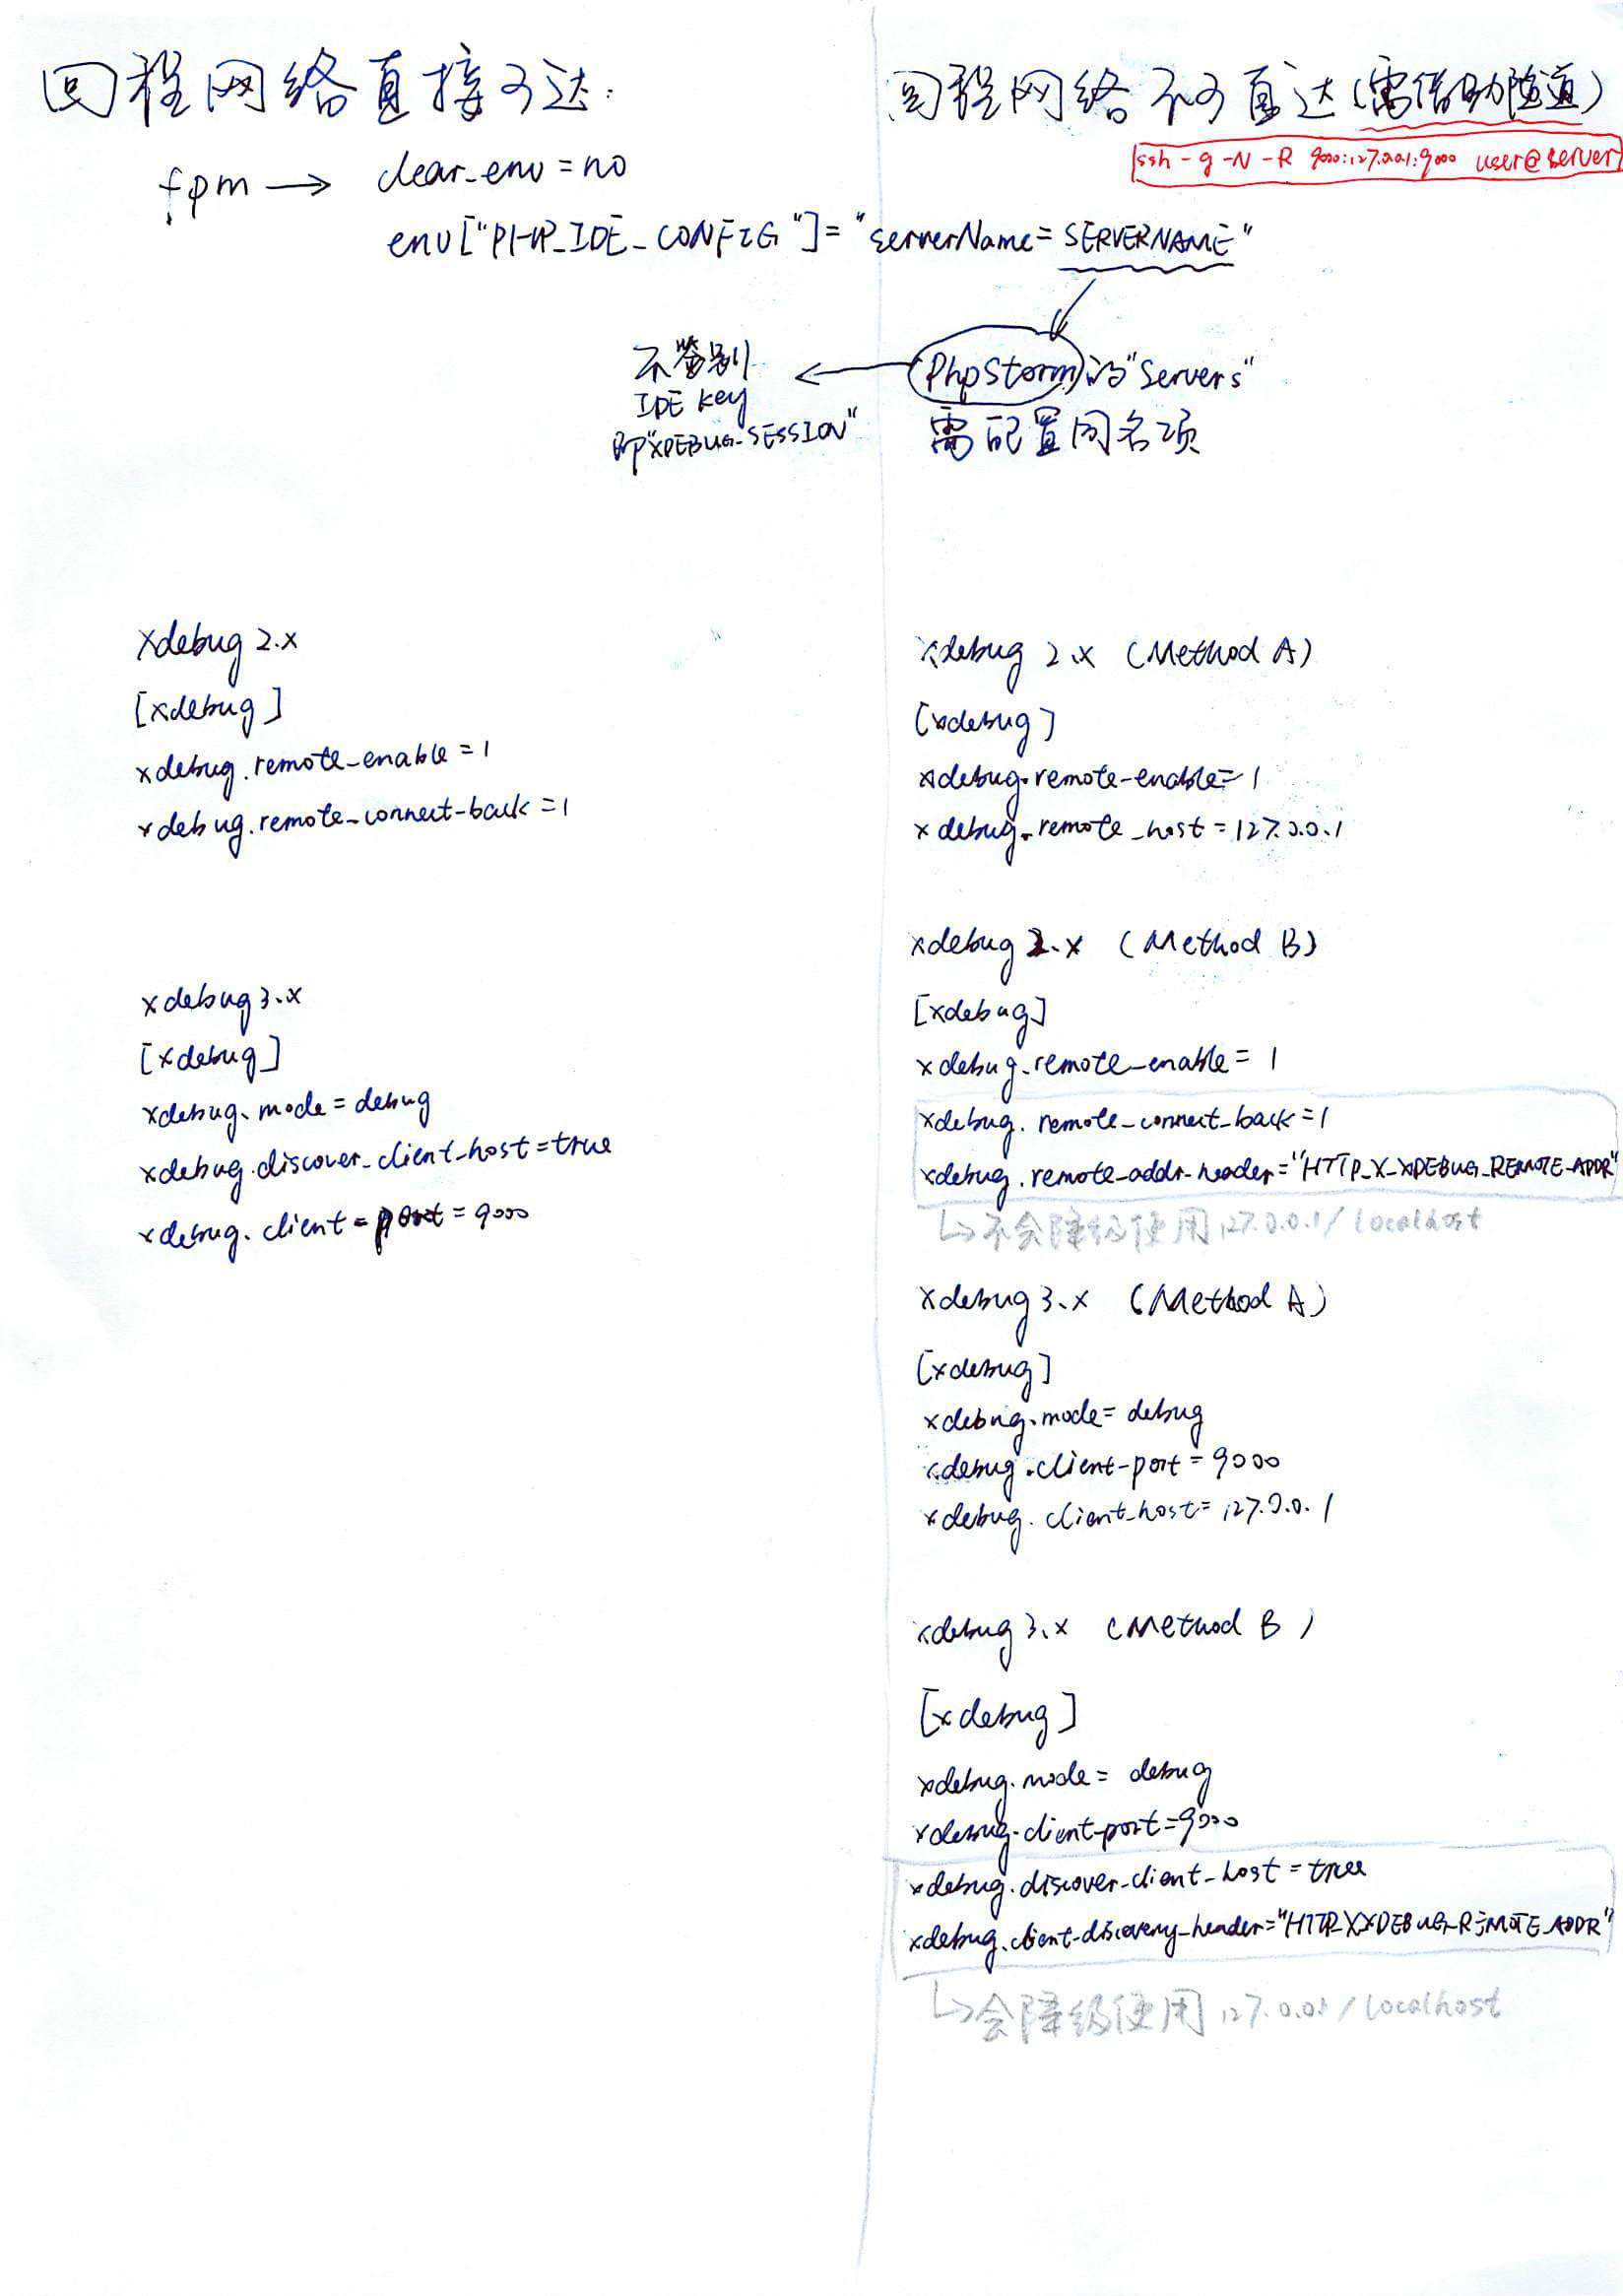 回程网络直接可达:
回程网络不可直达(需借助隧道)
ssh -g -N -R 9000:127.0.0.1:9000 user@server
fpm → clear_env = no
env["PHP_IDE_CONFIG"]="serverName=SERVERNAME"
PhpStorm的"Servers"
需配置同名项
不鉴别
IDE key
即"XDEBUG_SESSION"
xdebug 2.x
[xdebug]
xdebug.remote_enable=1
xdebug.remote_connect_back=1
xdebug 3.x
[xdebug]
xdebug.mode=debug
xdebug.discover_client_host=true
xdebug.client_port=9000
xdebug 2.x (Method A)
[xdebug]
xdebug.remote-enable=1
xdebug.remote_host=127.0.0.1
xdebug 2.x (Method B)
[xdebug]
xdebug.remote_enable=1
xdebug.remote_connect_back=1
xdebug.remote_addr_header="HTTP_X_XDEBUG_REMOTE_ADDR"
↳不会降级使用127.0.0.1/localhost
xdebug 3.x (Method A)
[xdebug]
xdebug.mode=debug
xdebug.client-port=9000
xdebug.client_host=127.0.0.1
xdebug 3.x (Method B)
[xdebug]
xdebug.mode=debug
xdebug.client-port=9000
xdebug.discover_client_host=true
xdebug.client-discovery_header="HTTP_X_XDEBUG_REMOTE_ADDR"
↳会降级使用127.0.0.1/localhost